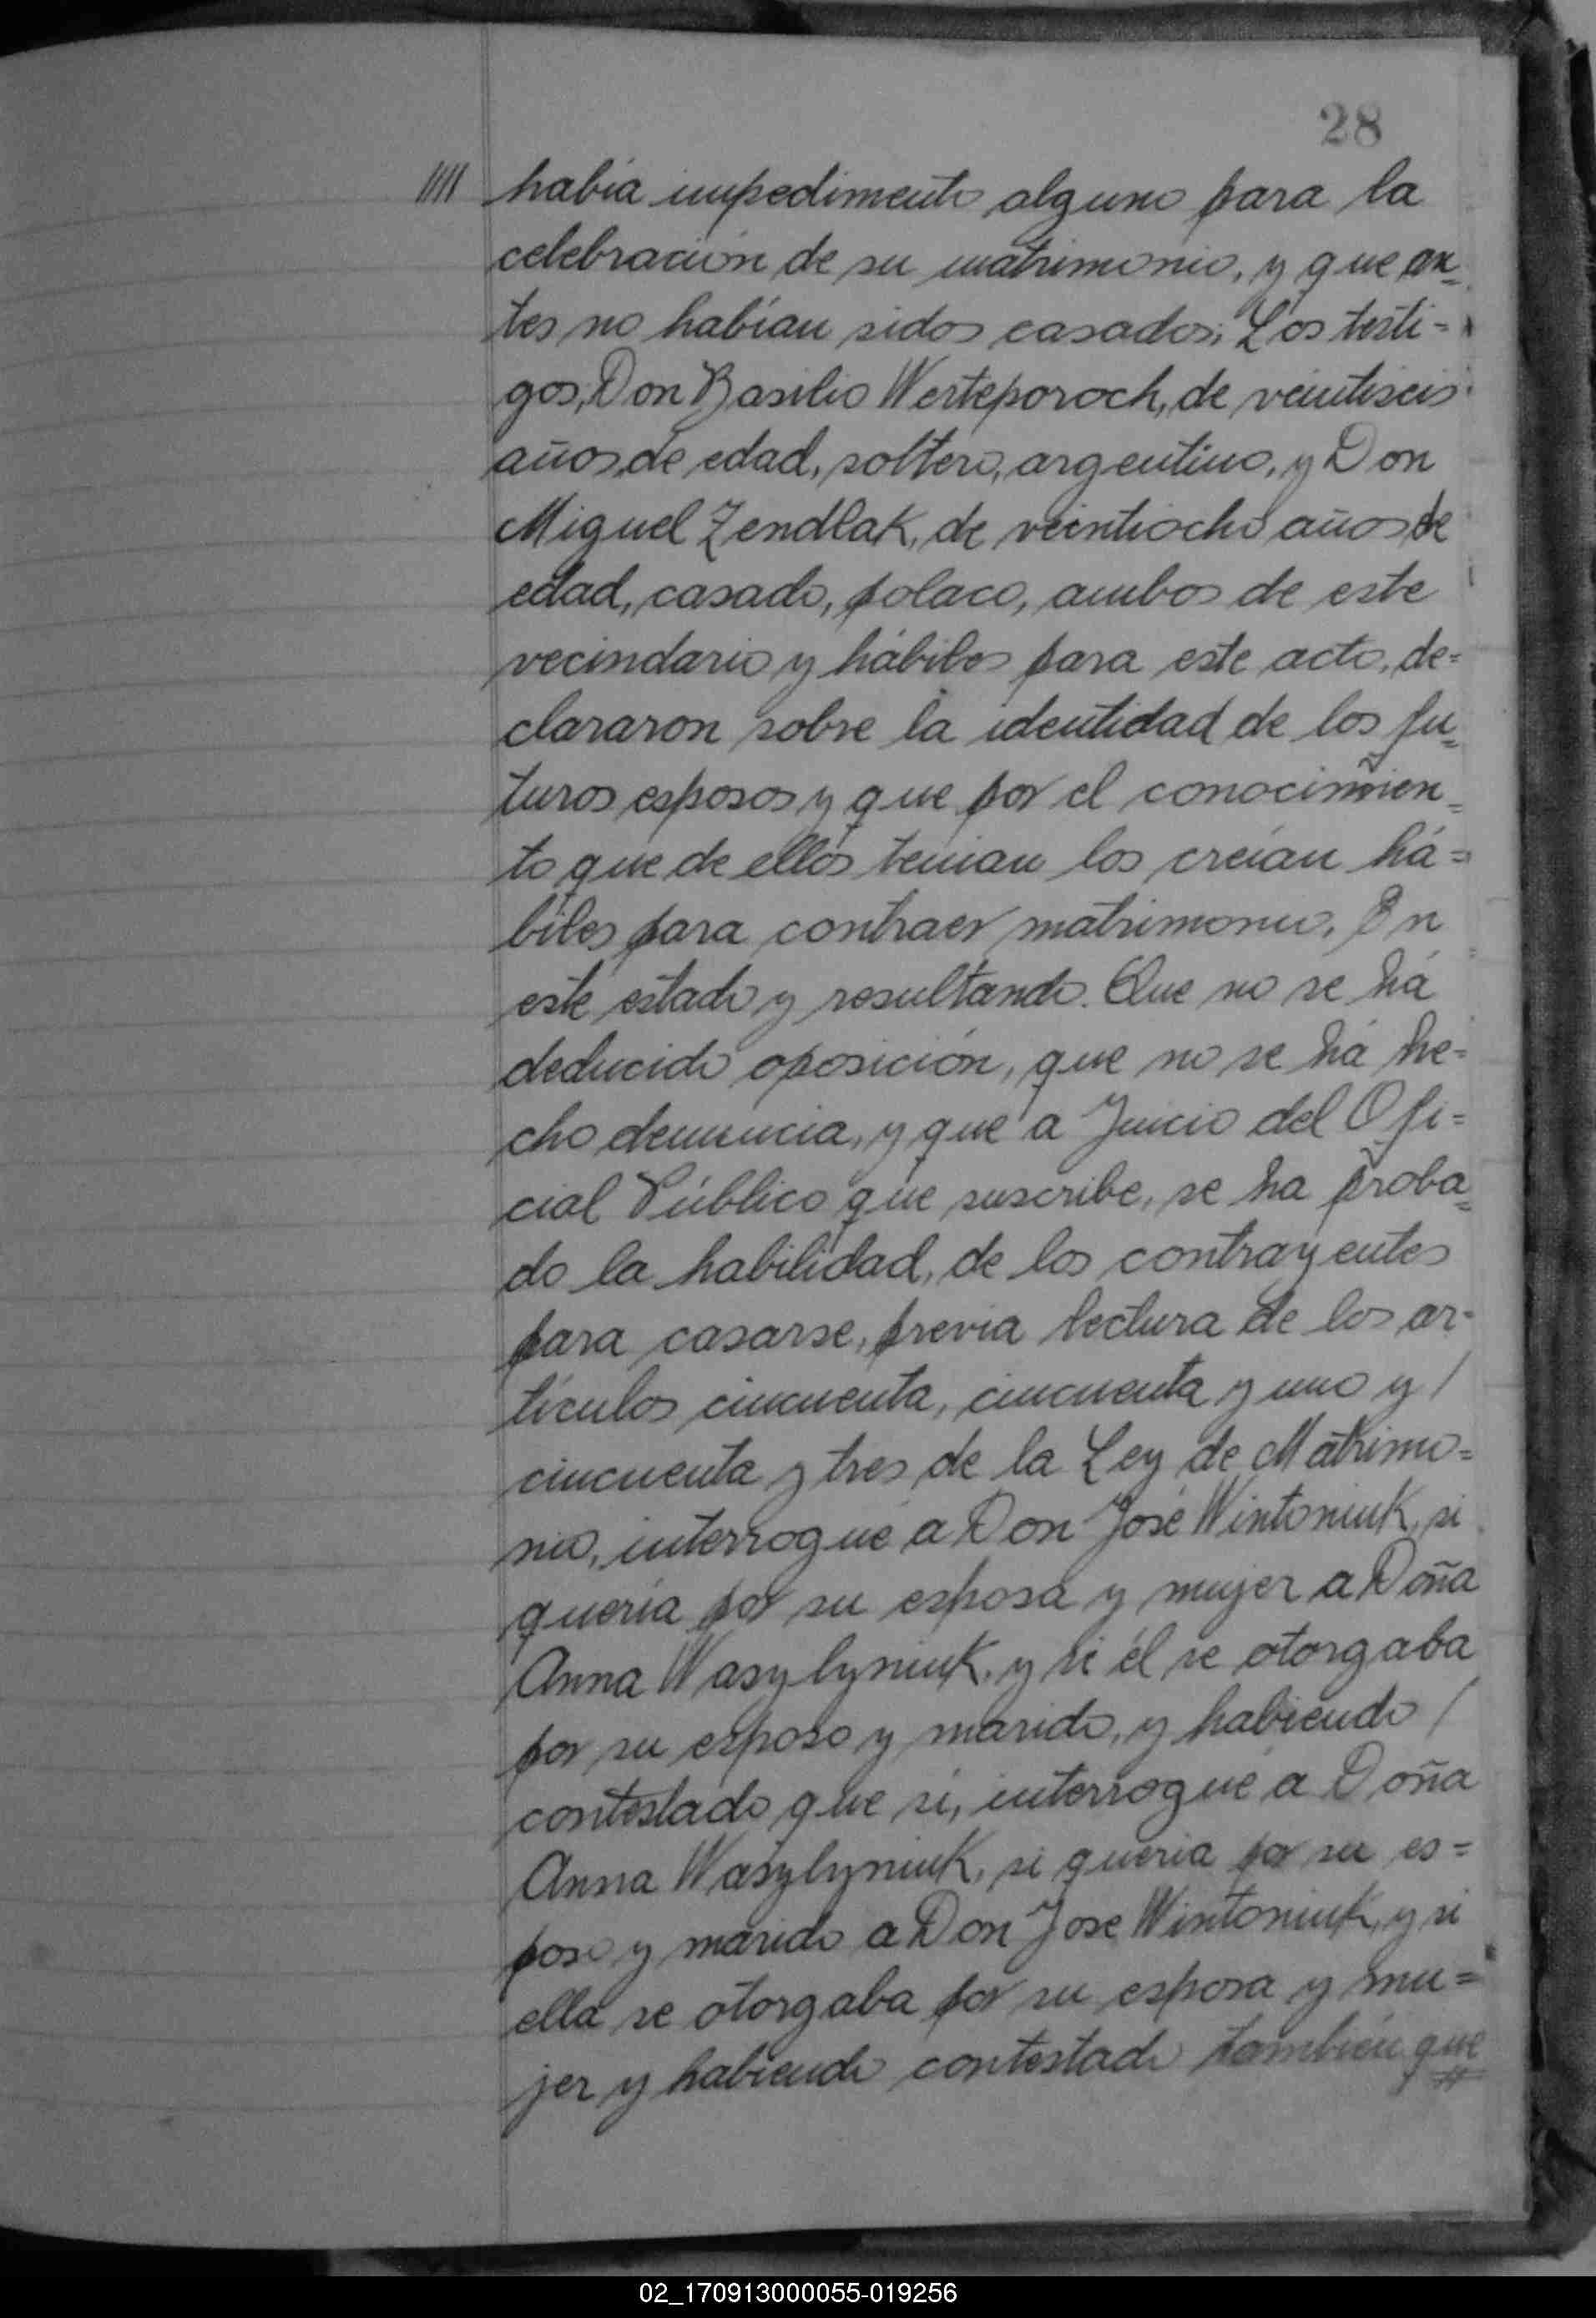 28
//// había impedimento alguno para la
celebración de su matrimonio, y que an=
tes no habían sidos casados; Los testi=
gos, Don Basilio Werteporoch, de veintiseis
años de edad, soltero, argentino, y Don
Miguel Zendlak, de veintiocho años de
edad, casado, polaco, ambos de este
vecindario y hábiles para este acto, de=
clararon sobre la identidad de los fu=
turos esposos y que por el conocimien=
to que de ellos tenían los creían há=
biles para contraer matrimonio. En
este estado y resultando. Que no se há
deducido oposición, que no se há he=
cho denuncia, y que a Juicio del Ofi=
cial Público que suscribe, se ha proba=
do la habilidad, de los contrayentes
para casarse, previa lectura de los ar=
tículos cincuenta, cincuenta y uno y /
cincuenta y tres de la Ley de Matrimo=
nio, interrogué a Don José Wintoniuk, si
quería por su esposa y mujer a Doña
Anna Wasylyniuk, y si él se otorgaba
por su esposo y marido, y habiendo /
contestado que si, interrogué a Doña
Anna Wasylyniuk, si quería por su es=
poso y marido a Don José Wintoniuk, y si
ella se otorgaba por su esposa y mu=
jer y habiendo contestado también que
02_170913000055-019256